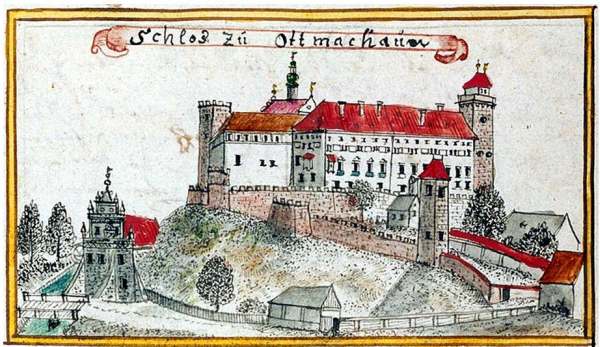 Schlos zu Ottmachauw